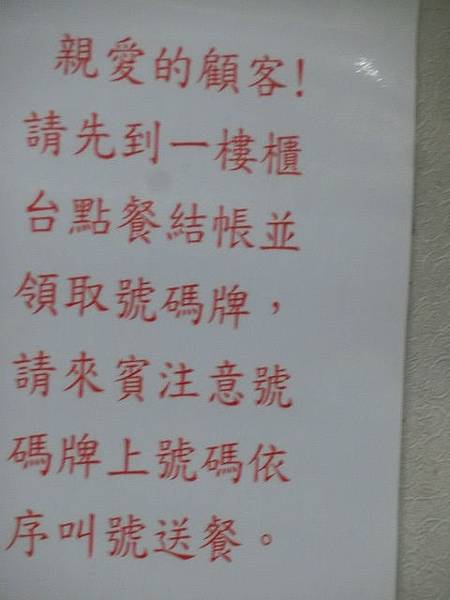 親愛的顧客!
請先到一樓櫃
台點餐結帳並
領取號碼牌，
請來賓注意號
碼牌上號碼依
序叫號送餐。